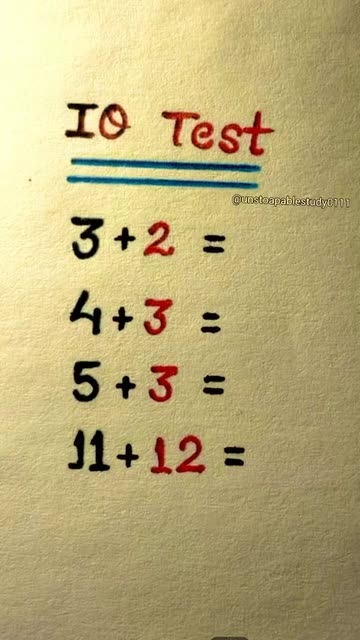 IQ Test
@unstoapablestudy0111
3 + 2 =
4 + 3 =
5 + 3 =
11 + 12 =